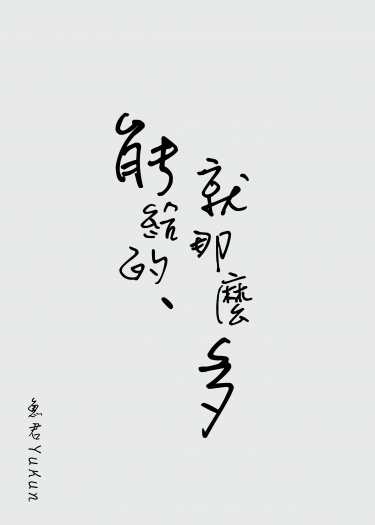 能給的、
就那麼多
魚君YuKun